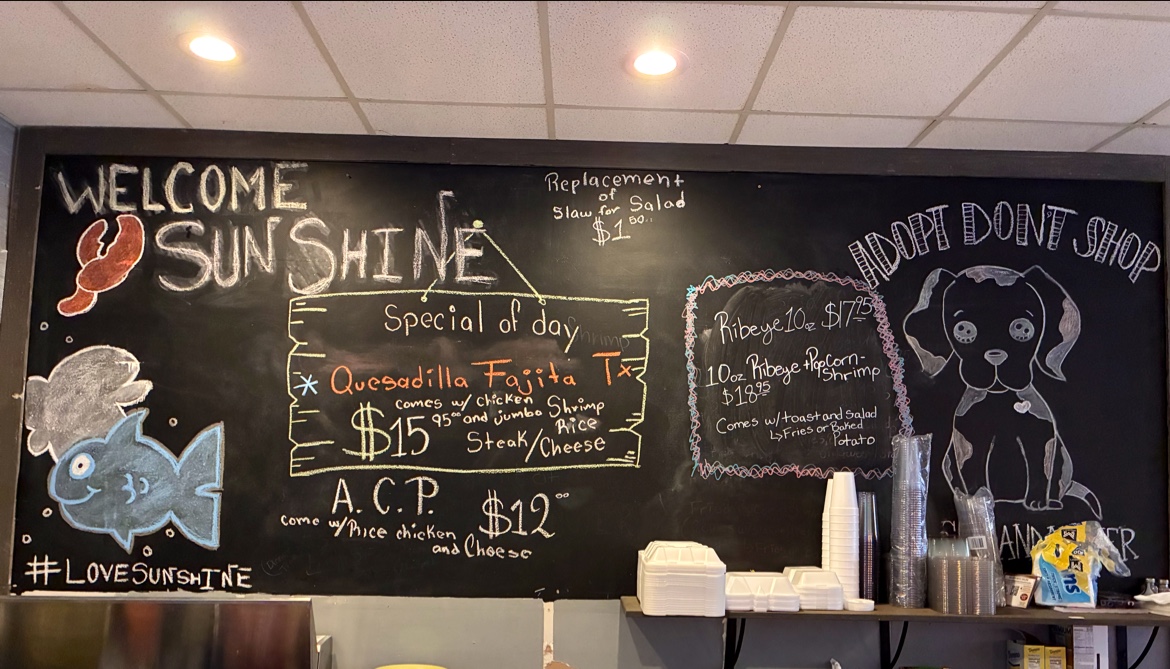 WELCOME
SUNSHINE
Replacement
of
Slaw for Salad
$1 50
ADOPT DON'T SHOP
Special of day
Shrimp
* Quesadilla Fajita Tx
comes w/ chicken
$15 95 and jumbo Shrimp
Rice
Steak/Cheese
Ribeye 10oz $17 95
10oz Ribeye + Popcorn-
Shrimp
$18 95
Comes w/ toast and Salad
↳ Fries or Baked
Potato
A.C.P. $12 00
come w/ Rice chicken
and Cheese
#LOVESUNSHINE